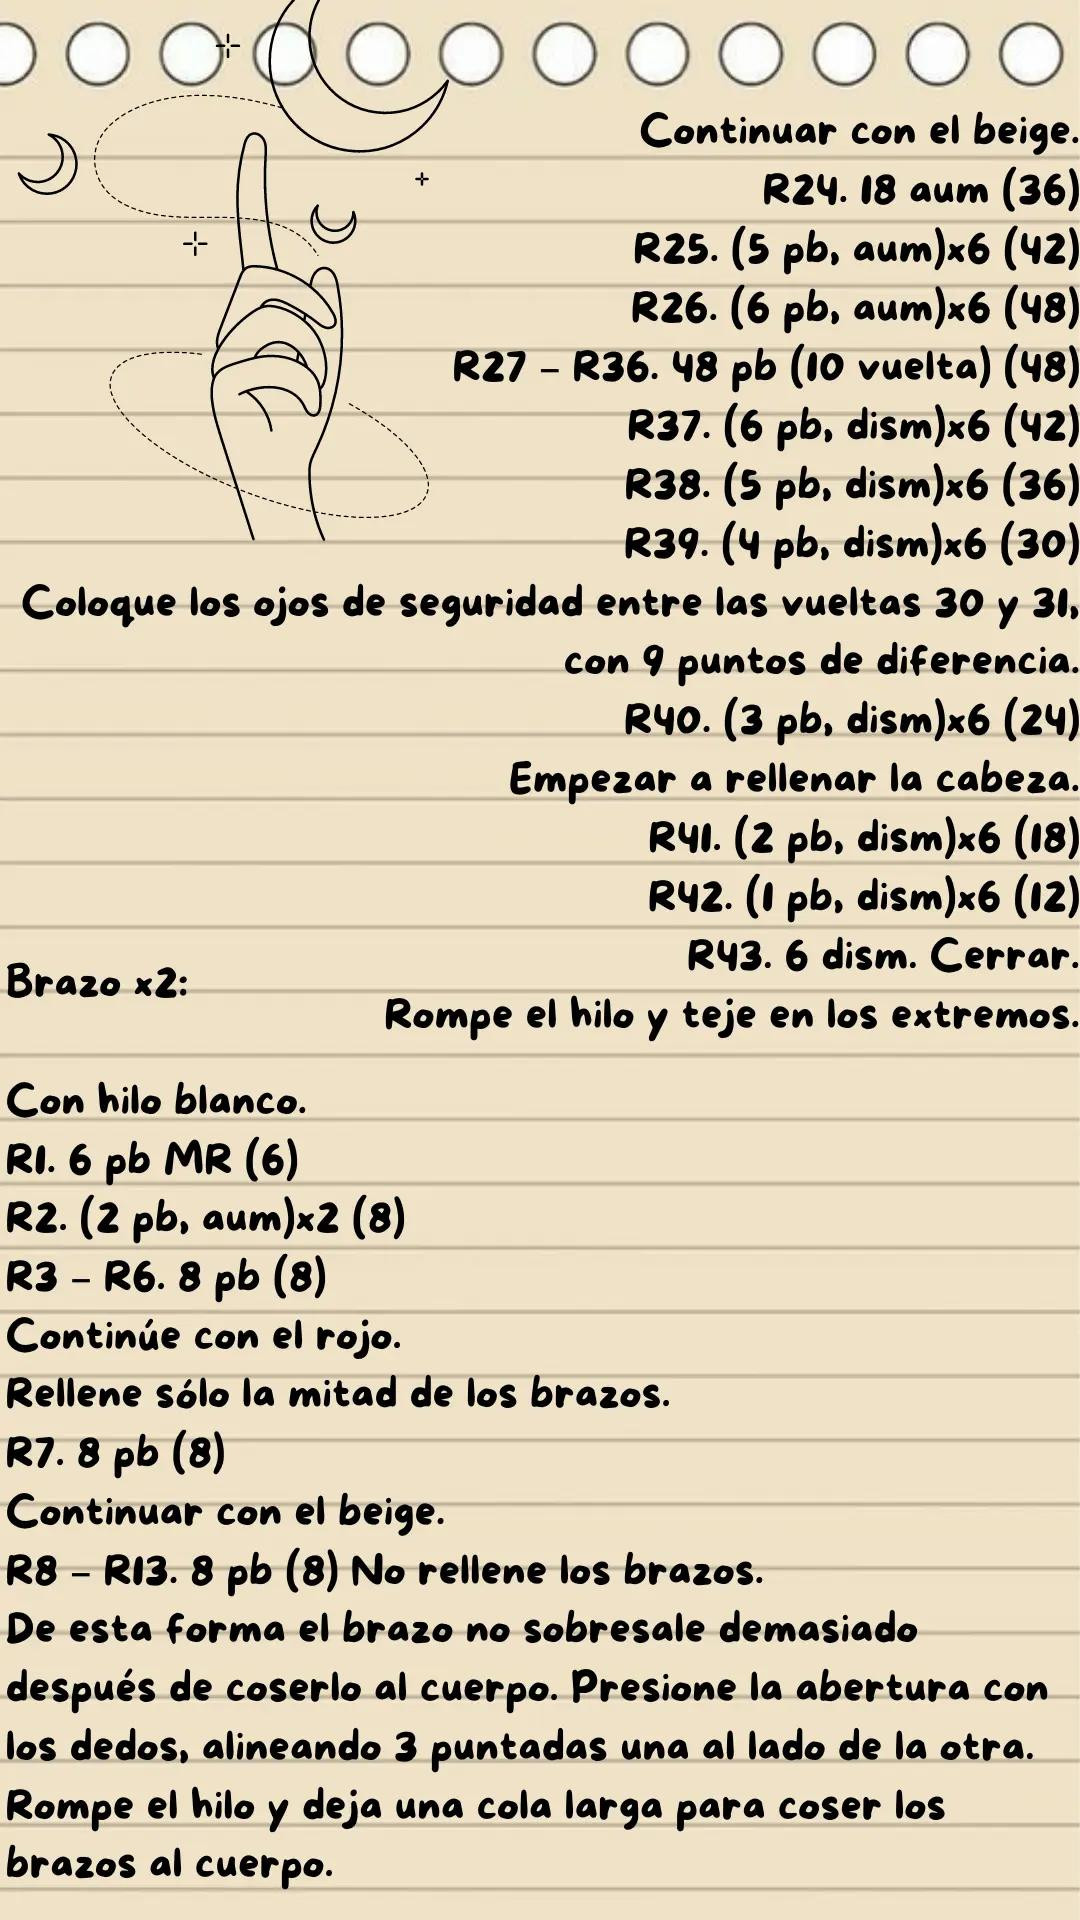 Continuar con el beige.
R24. 18 aum (36)
R25. (5 pb, aum)x6 (42)
R26. (6 pb, aum)x6 (48)
R27 – R36. 48 pb (10 vuelta) (48)
R37. (6 pb, dism)x6 (42)
R38. (5 pb, dism)x6 (36)
R39. (4 pb, dism)x6 (30)
Coloque los ojos de seguridad entre las vueltas 30 y 31,
con 9 puntos de diferencia.
R40. (3 pb, dism)x6 (24)
Empezar a rellenar la cabeza.
R41. (2 pb, dism)x6 (18)
R42. (1 pb, dism)x6 (12)
R43. 6 dism. Cerrar.
Rompe el hilo y teje en los extremos.
Brazo x2:
Con hilo blanco.
R1. 6 pb MR (6)
R2. (2 pb, aum)x2 (8)
R3 – R6. 8 pb (8)
Continúe con el rojo.
Rellene sólo la mitad de los brazos.
R7. 8 pb (8)
Continuar con el beige.
R8 – R13. 8 pb (8) No rellene los brazos.
De esta forma el brazo no sobresale demasiado
después de coserlo al cuerpo. Presione la abertura con
los dedos, alineando 3 puntadas una al lado de la otra.
Rompe el hilo y deja una cola larga para coser los
brazos al cuerpo.